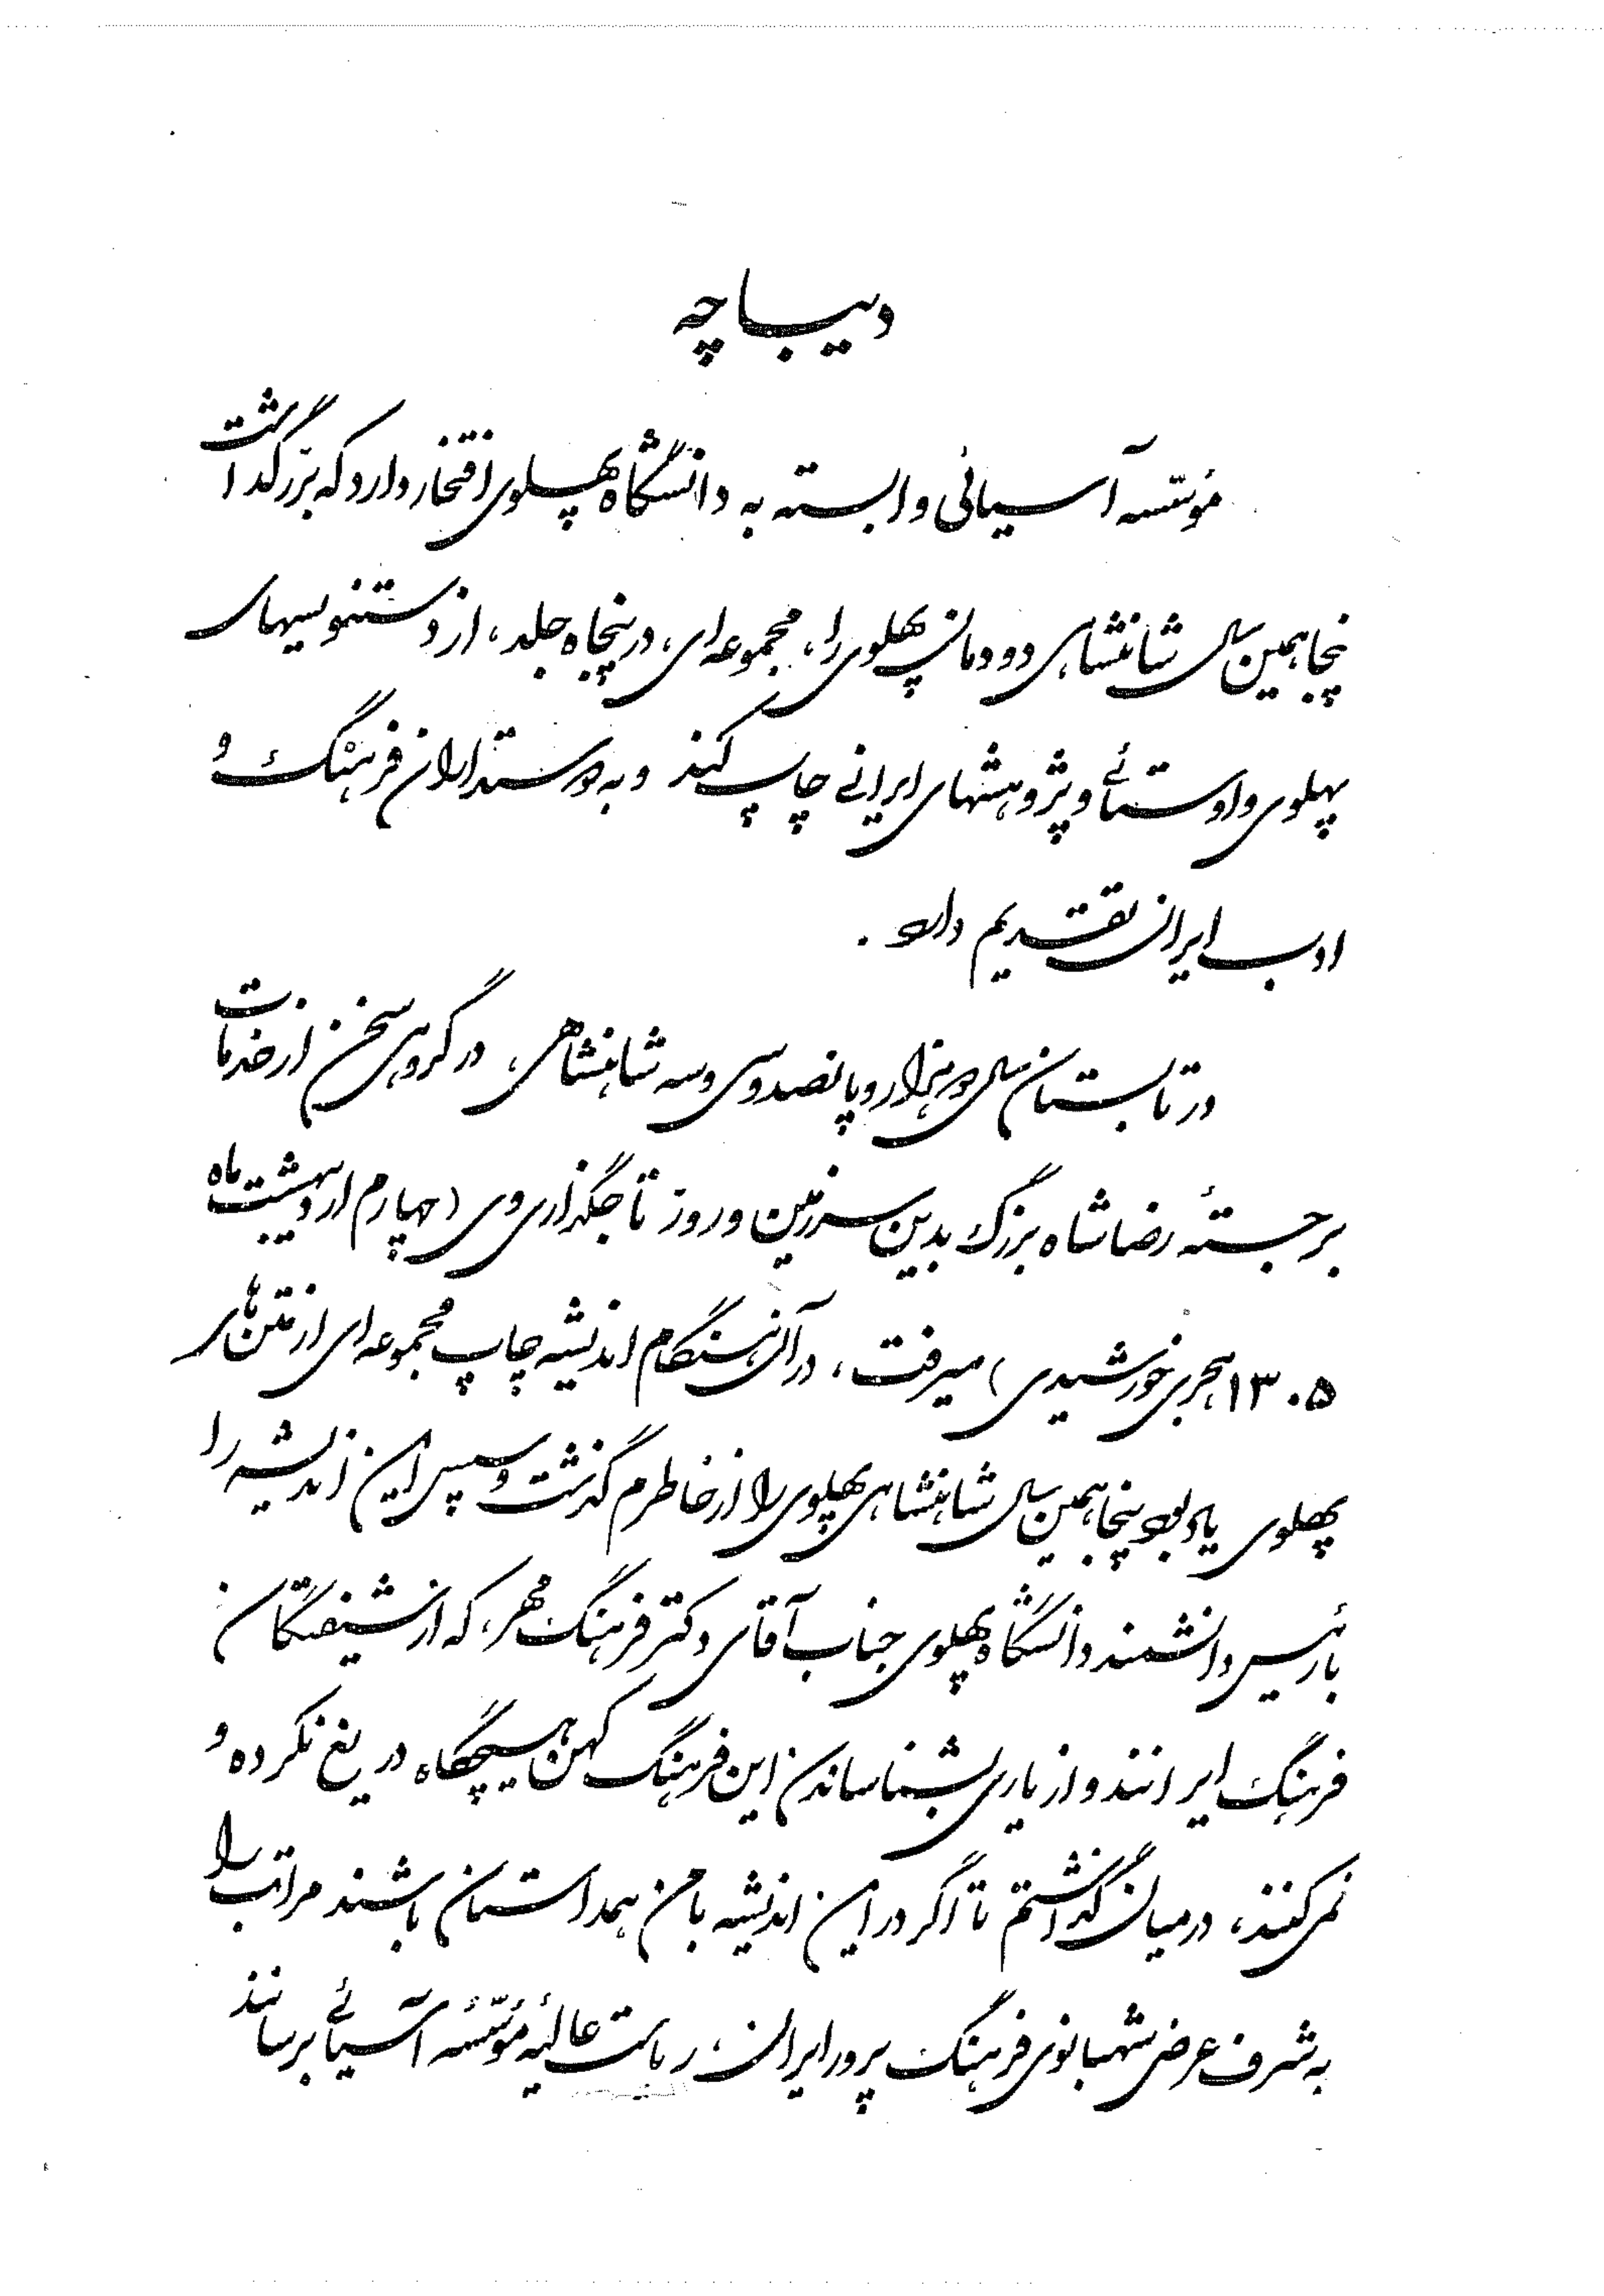 دیباچه
مؤسسه آسیائی وابسته به دانشگاه پهلوی افتخار دارد که بزرگداشت
پنجاهمین سال شاهنشاهی دودمان پهلوی را، مجموعه‌ای، در پنجاه جلد، از دستنویسهای
پهلوی و اوستائی و پژوهشهای ایرانی چاپ کند و به دوستداران فرهنگ و
ادب ایران تقدیم دارد .
در تابستان سال دو هزار و پانصد و سی و سه شاهنشاهی، در گروهی سخن از خدمات
برجستهٔ رضا شاه بزرگ بدین سرزمین و روز تاجگذاری وی (چهارم اردیبهشت ماه
۱۳۰۵ هجری خورشیدی) میرفت، در آن هنگام اندیشه چاپ مجموعه‌ای از متن‌های
پهلوی یادبود پنجاهمین سال شاهنشاهی پهلوی را از خاطرم گذشت و سپس این اندیشه را
با رئیس دانشمند دانشگاه پهلوی جناب آقای دکتر فرهنگ مهر، که از شیفتگان
فرهنگ ایرانند و از یاری بشناساندن این فرهنگ کهن هیچگاه دریغ نکرده و
نمی‌کنند، در میان گذاشتم تا اگر در این اندیشه با من همداستان باشند مراتب را
به شرف عرض شهبانوی فرهنگ پرور ایران، ریاست عالیهٔ مؤسسهٔ آسیائی برسانند